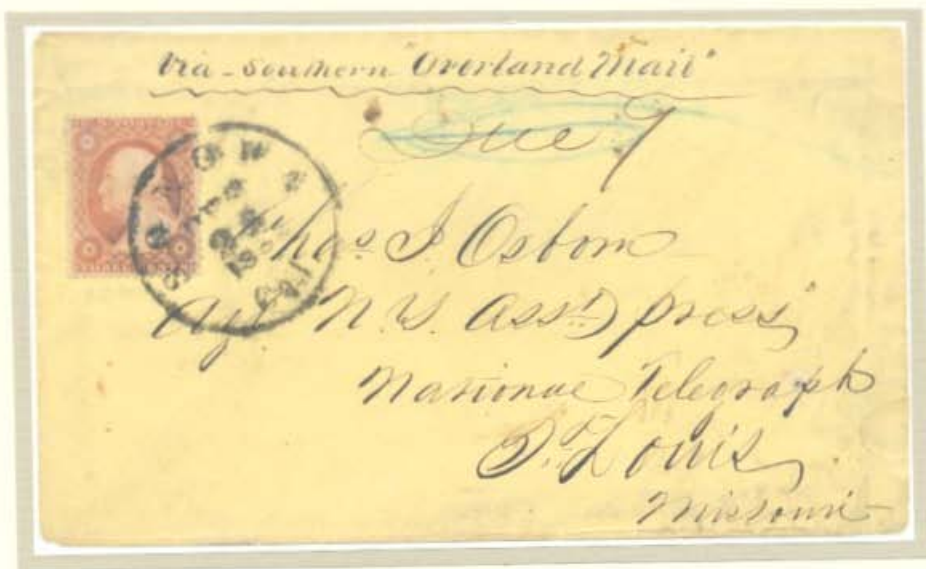 via - Southern "Overland Mail"
Due 7
Chas J Osborn
Agt N.Y. Asstd press,
National Telegraph
St Louis,
Missouri
THREE CENTS
22
Cal